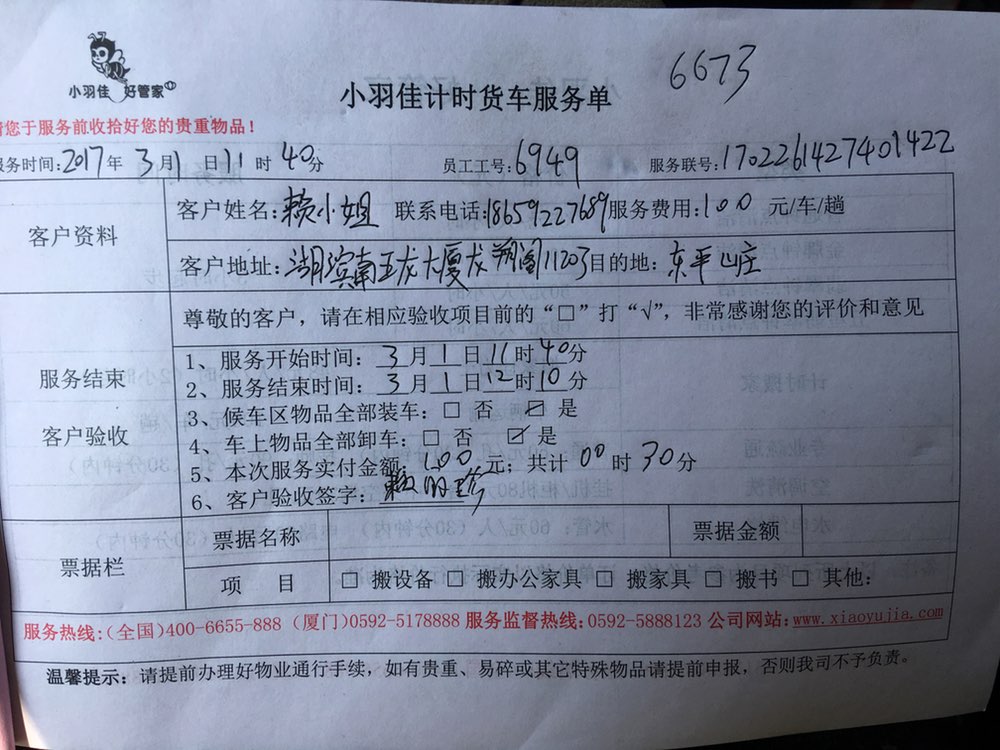 6673
小羽佳 好管家
小羽佳计时货车服务单
请您于服务前收拾好您的贵重物品！
服务时间:2017年 3月1日11时40分 员工工号:6949 服务联号:1702261427401422
客户资料
客户姓名:赖小姐 联系电话:18659227689服务费用:100 元/车/趟
客户地址:湖滨南五龙大厦龙翔阁11203目的地:东平山庄
尊敬的客户，请在相应验收项目前的“□”打“√”，非常感谢您的评价和意见
服务结束
客户验收
1、服务开始时间: 3月1日11时40分
2、服务结束时间: 3月1日12时10分
3、候车区物品全部装车: □ 否 ☑ 是
4、车上物品全部卸车: □ 否 ☑ 是
5、本次服务实付金额:100元; 共计 00 时30分
6、客户验收签字:
票据栏
票据名称 票据金额
项 目 □ 搬设备 □ 搬办公家具 □ 搬家具 □ 搬书 □ 其他:
服务热线:(全国)400-6655-888 (厦门)0592-5178888 服务监督热线:0592-5888123 公司网站:www.xiaoyujia.com
温馨提示: 请提前办理好物业通行手续，如有贵重、易碎或其它特殊物品请提前申报，否则我司不予负责。